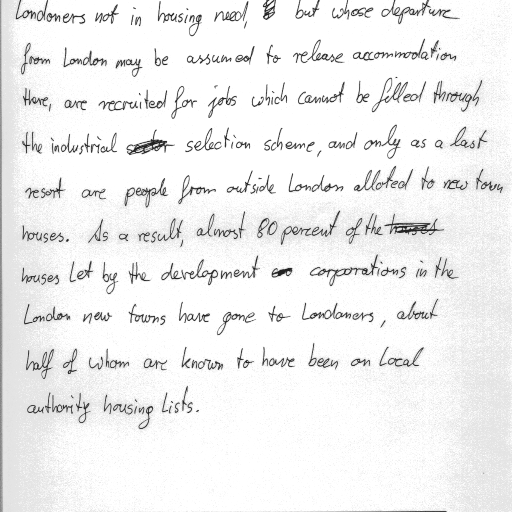 Londoners not in housing need, but whose departure
from London may be assumed to release accommodation
there, are recruited for jobs which cannot be filled through
the industrial selection scheme, and only as a last
resort are people from outside London alloted to new town
houses. As a result, almost 80 percent of the houses
houses let by the development corporations in the
London new towns have gone to Londoners, about
half of whom are known to have been on local
authority housing lists.